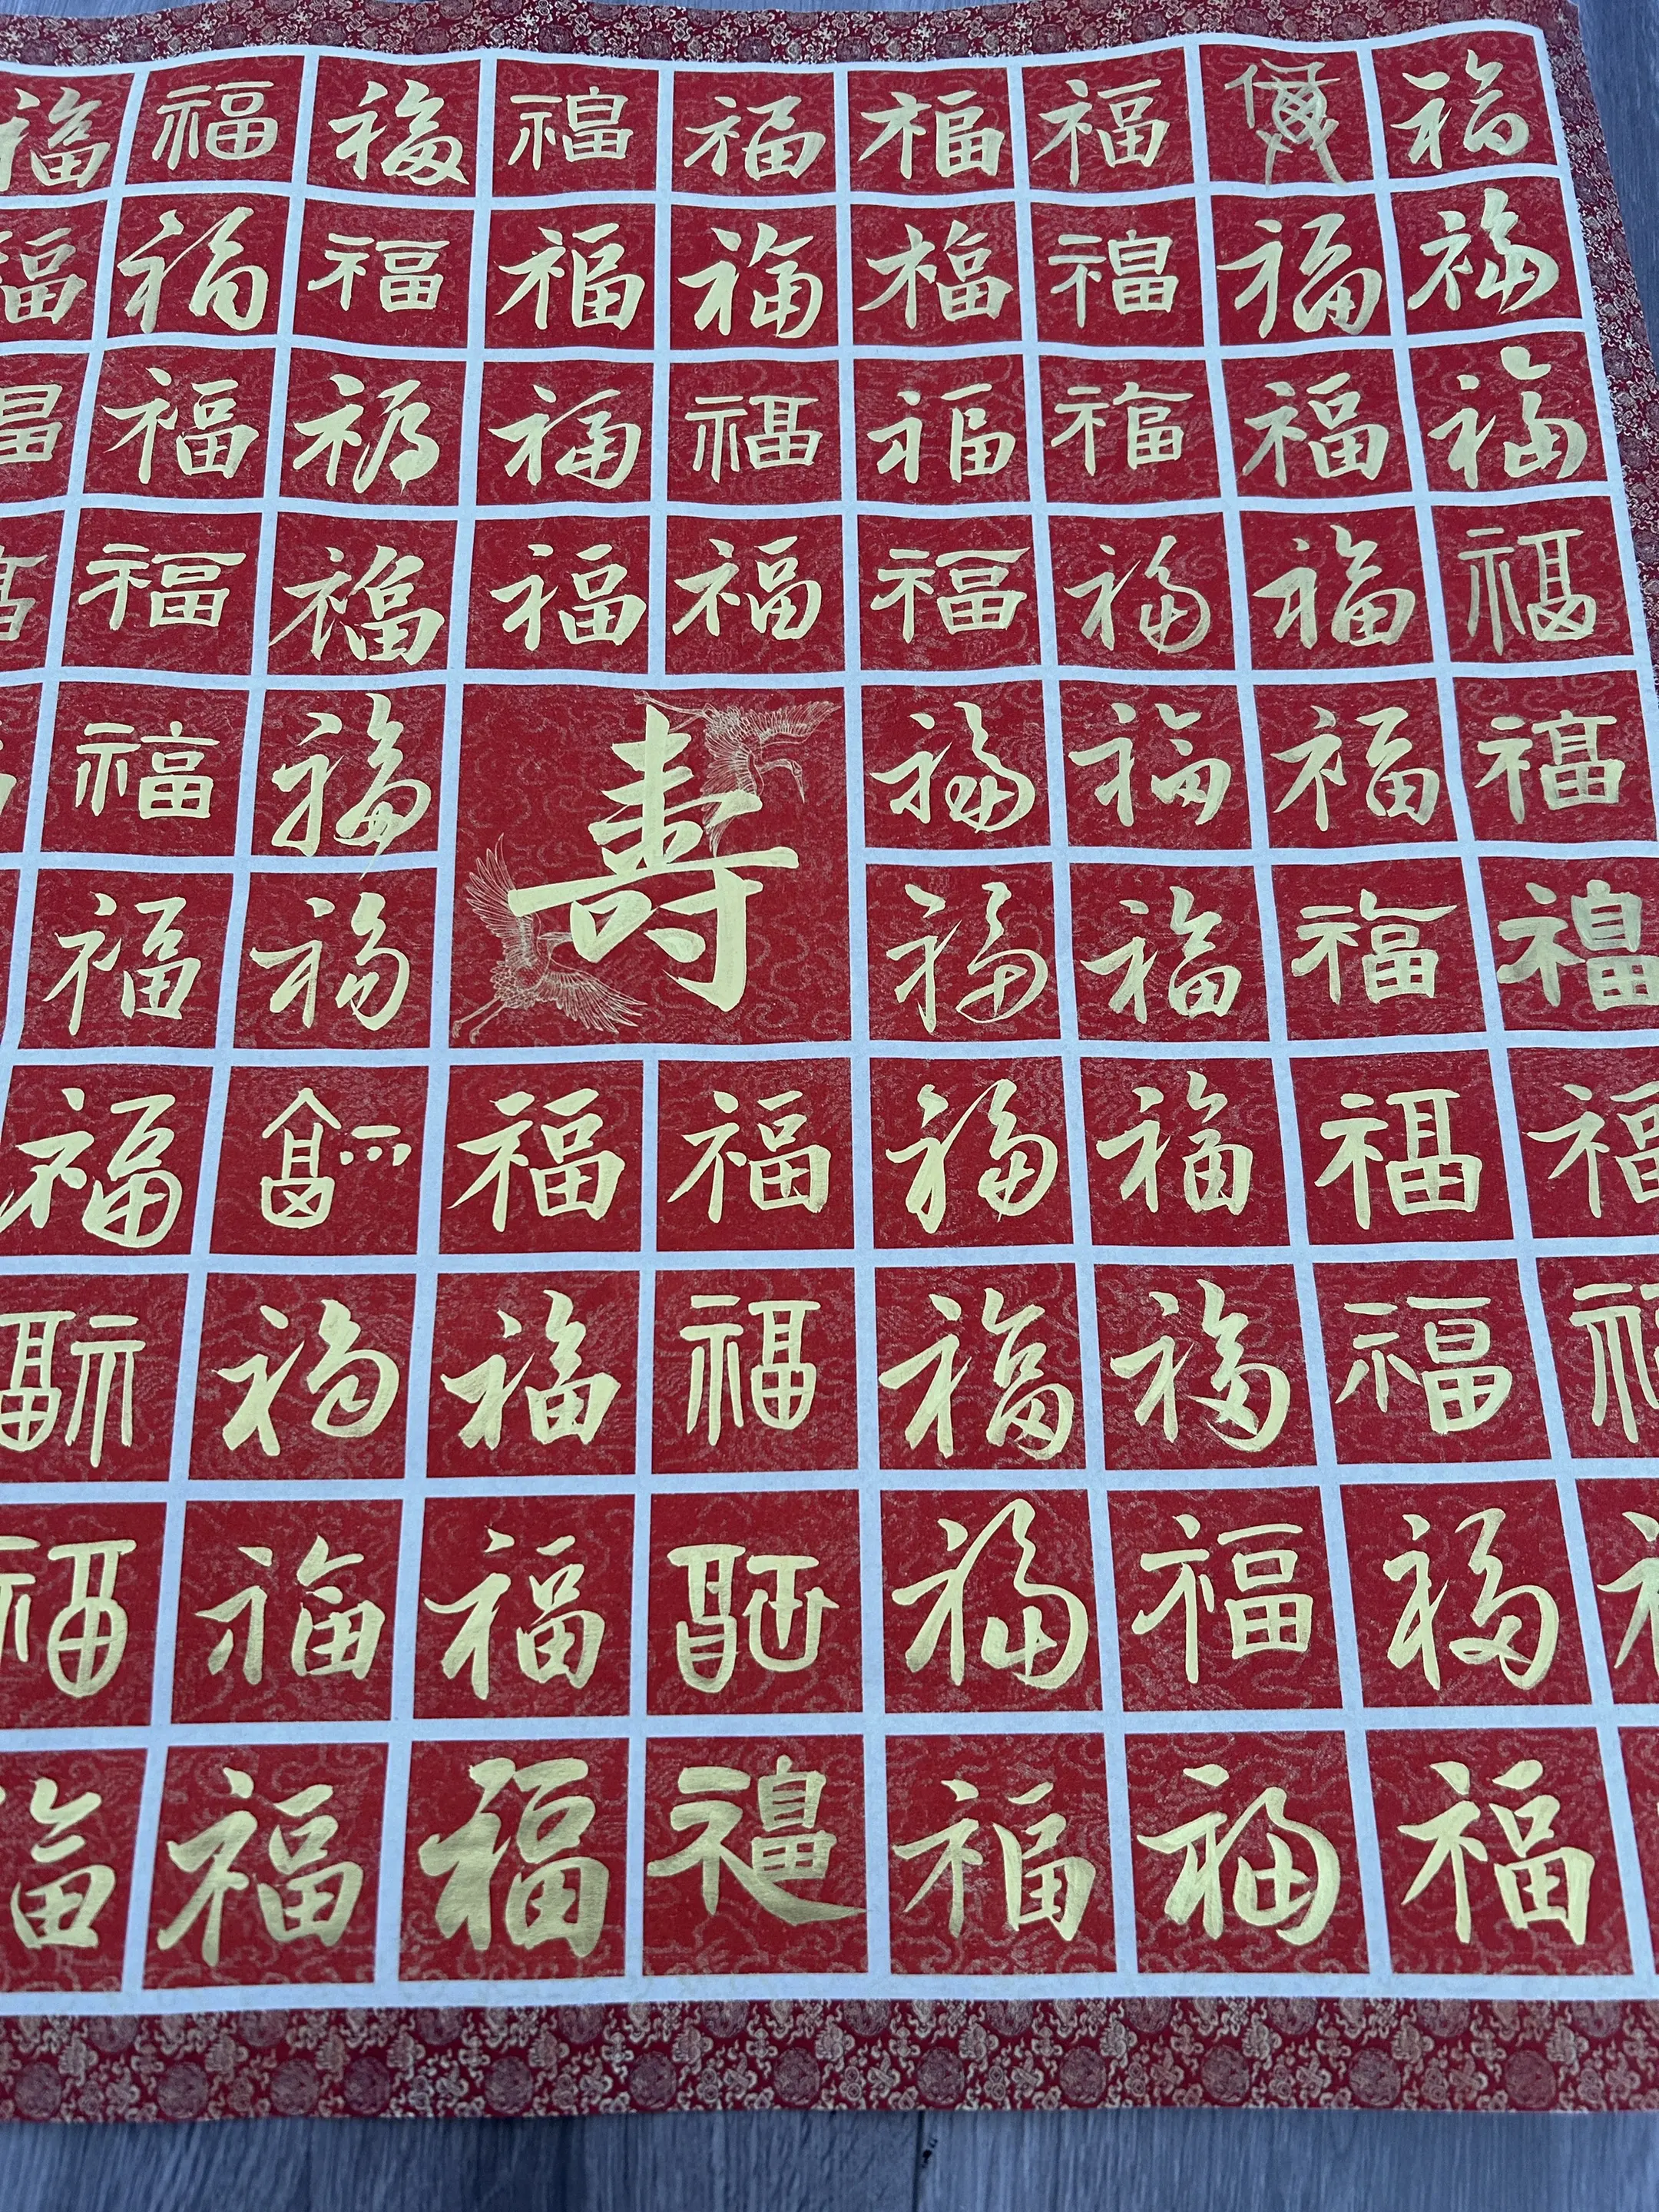 福 福 福 福 福 福 福 福
福 福 福 福 福 福 福 福 福
福 福 福 福 福 福 福 福
福 福 福 福 福 福 福 福
福 福 寿 福 福 福 福
福 福 福 福 福 福
福 福 福 福 福 福 福 福
福 福 福 福 福 福 福
福 福 福 福 福 福 福
福 福 福 福 福 福